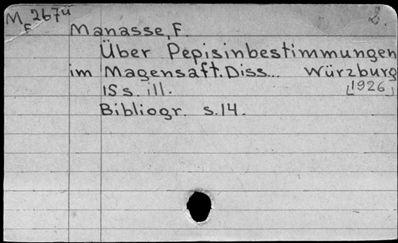 M 2674
c
2.
Manasse, F.
Über Pepisinbestimmungen
im Magensaft. Diss... Würzburg
15 s. ill. [1926]
Bibliogr. s.14.